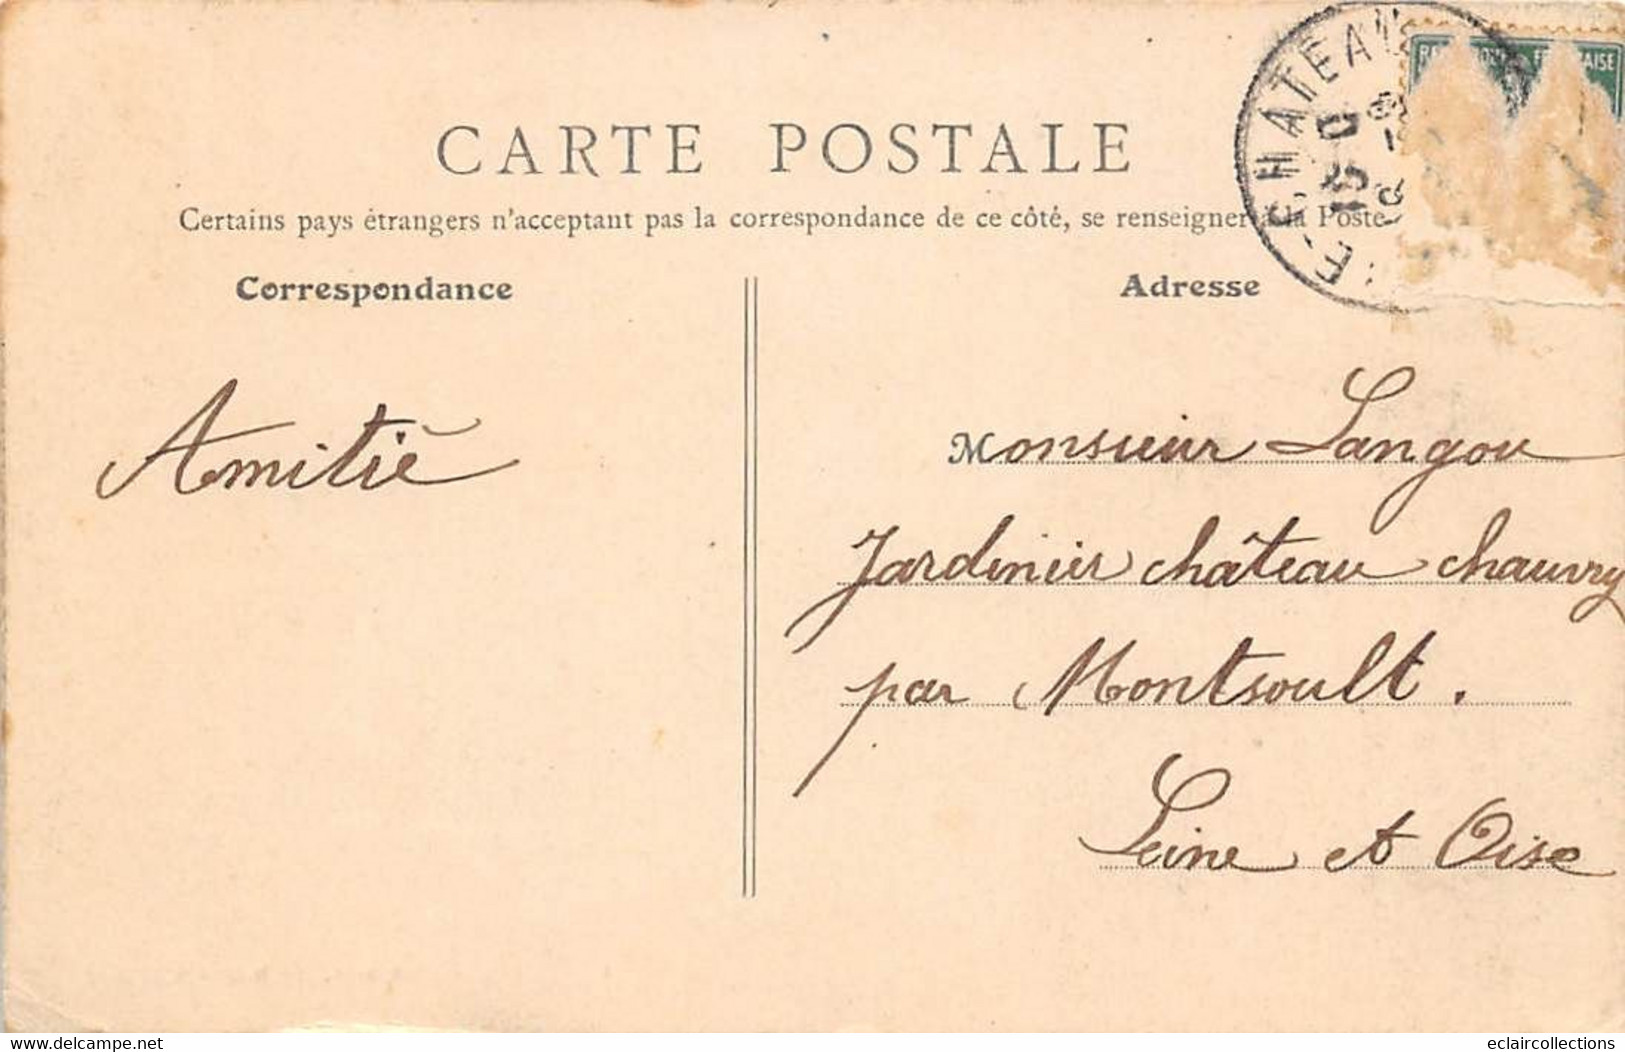 CARTE POSTALE
Certains pays étrangers n'acceptant pas la correspondance de ce côté, se renseigner à la Poste
Correspondance
Adresse
E-CHATEAU
15-0
Amitié
Monsieur Langou
Jardinier château chauvry
par Montsoult.
Seine et Oise
delcampe.net
eclaircollections